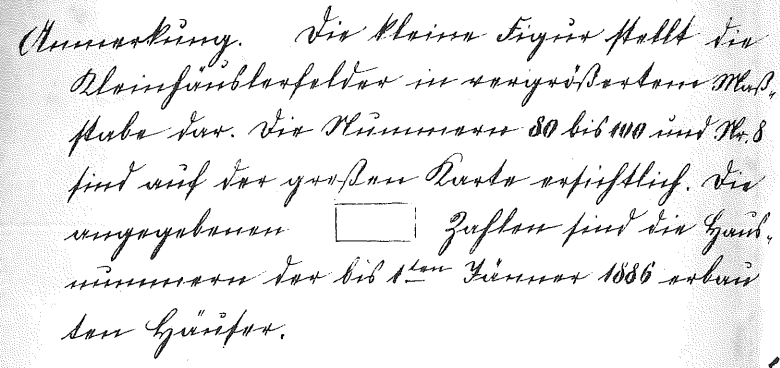 Anmerkung. Die kleine Figur stellt die
Kleinhäuslerfelder in vergrößertem Maß-
stabe dar. Die Nummern 80 bis 100 und Nr. 8
sind auf der großen Karte ersichtlich. Die
angegebenen Zahlen sind die Haus-
nummern der bis 1ten Jänner 1886 erbau
ten Häuser.